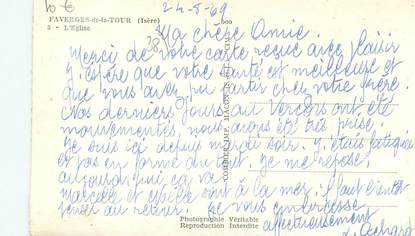 10 €
FAVERGES-de-la-TOUR (Isère)
24-5-69
3 - L'Eglise
38
Ma chère Amie.
Merci de votre carte reçue avec plaisir
J'espère que votre santé est meilleure et
que vous avez pu partir chez votre frère.
Nos derniers jours au Vercors ont été
mouvementés, nous avons été très prise,
je suis ici depuis mardi soir. J'étais fatiguée
et pas en forme du tout. Je me repose,
aujourd'hui ça va
Marcelle et sont à la mer. Il faut bientôt
penser au retour. Je vous embrasse
affectueusement
Photographie Véritable
Reproduction Interdite
COMBIER IMP. MACON